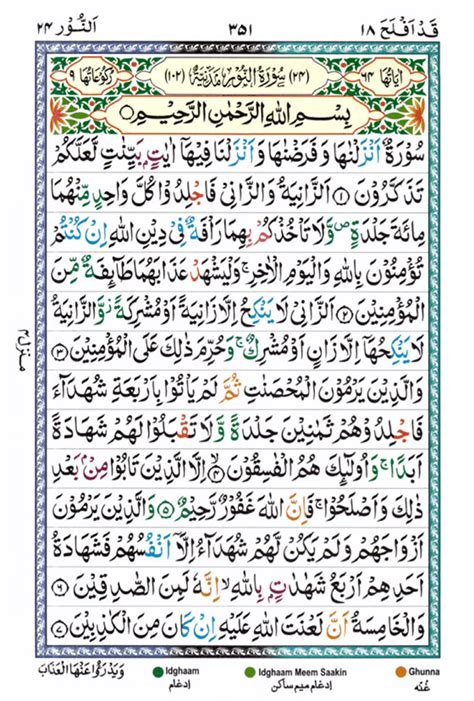 قَدْ اَفْلَحَ ١٨ ٣٥١ اَلنُّوْر ٢٤
اٰيَاتُهَا ٦٤ (٢٤) سُوْرَةُ النُّوْرِ مَدَنِيَّةٌ (١٠٢) رُكُوْعَاتُهَا ٩
بِسْمِ اللّٰهِ الرَّحْمٰنِ الرَّحِيْمِ
سُوْرَةٌ اَنْزَلْنٰهَا وَفَرَضْنٰهَا وَاَنْزَلْنَا فِيْهَاۤ اٰيٰتٍۭ بَيِّنٰتٍ لَّعَلَّكُمْ
تَذَكَّرُوْنَ ١ اَلزَّانِيَةُ وَالزَّانِيْ فَاجْلِدُوْا كُلَّ وَاحِدٍ مِّنْهُمَا
مِائَةَ جَلْدَةٍ ۪ وَّلَا تَاْخُذْكُمْ بِهِمَا رَاْفَةٌ فِيْ دِيْنِ اللّٰهِ اِنْ كُنْتُمْ
تُؤْمِنُوْنَ بِاللّٰهِ وَالْيَوْمِ الْاٰخِرِ ۚ وَلْيَشْهَدْ عَذَابَهُمَا طَآئِفَةٌ مِّنَ
الْمُؤْمِنِيْنَ ٢ اَلزَّانِيْ لَا يَنْكِحُ اِلَّا زَانِيَةً اَوْ مُشْرِكَةً ؗ وَّالزَّانِيَةُ
لَا يَنْكِحُهَاۤ اِلَّا زَانٍ اَوْ مُشْرِكٌ ۚ وَحُرِّمَ ذٰلِكَ عَلَى الْمُؤْمِنِيْنَ ٣
وَالَّذِيْنَ يَرْمُوْنَ الْمُحْصَنٰتِ ثُمَّ لَمْ يَاْتُوْا بِاَرْبَعَةِ شُهَدَآءَ
فَاجْلِدُوْهُمْ ثَمٰنِيْنَ جَلْدَةً وَّلَا تَقْبَلُوْا لَهُمْ شَهَادَةً
اَبَدًا ۚ وَاُولٰٓئِكَ هُمُ الْفٰسِقُوْنَ ٤ اِلَّا الَّذِيْنَ تَابُوْا مِنْۢ بَعْدِ
ذٰلِكَ وَاَصْلَحُوْا ۚ فَاِنَّ اللّٰهَ غَفُوْرٌ رَّحِيْمٌ ٥ وَالَّذِيْنَ يَرْمُوْنَ
اَزْوَاجَهُمْ وَلَمْ يَكُنْ لَّهُمْ شُهَدَآءُ اِلَّاۤ اَنْفُسُهُمْ فَشَهَادَةُ
اَحَدِهِمْ اَرْبَعُ شَهٰدٰتٍۭ بِاللّٰهِ ۙ اِنَّهٗ لَمِنَ الصّٰدِقِيْنَ ٦
وَالْخَامِسَةُ اَنَّ لَعْنَتَ اللّٰهِ عَلَيْهِ اِنْ كَانَ مِنَ الْكٰذِبِيْنَ ٧
منزل ٤
وَيَدْرَؤُا عَنْهَا الْعَذَابَ
Idghaam Idghaam Meem Saakin Ghunna
ادغام ادغام میم ساکن غُنّہ